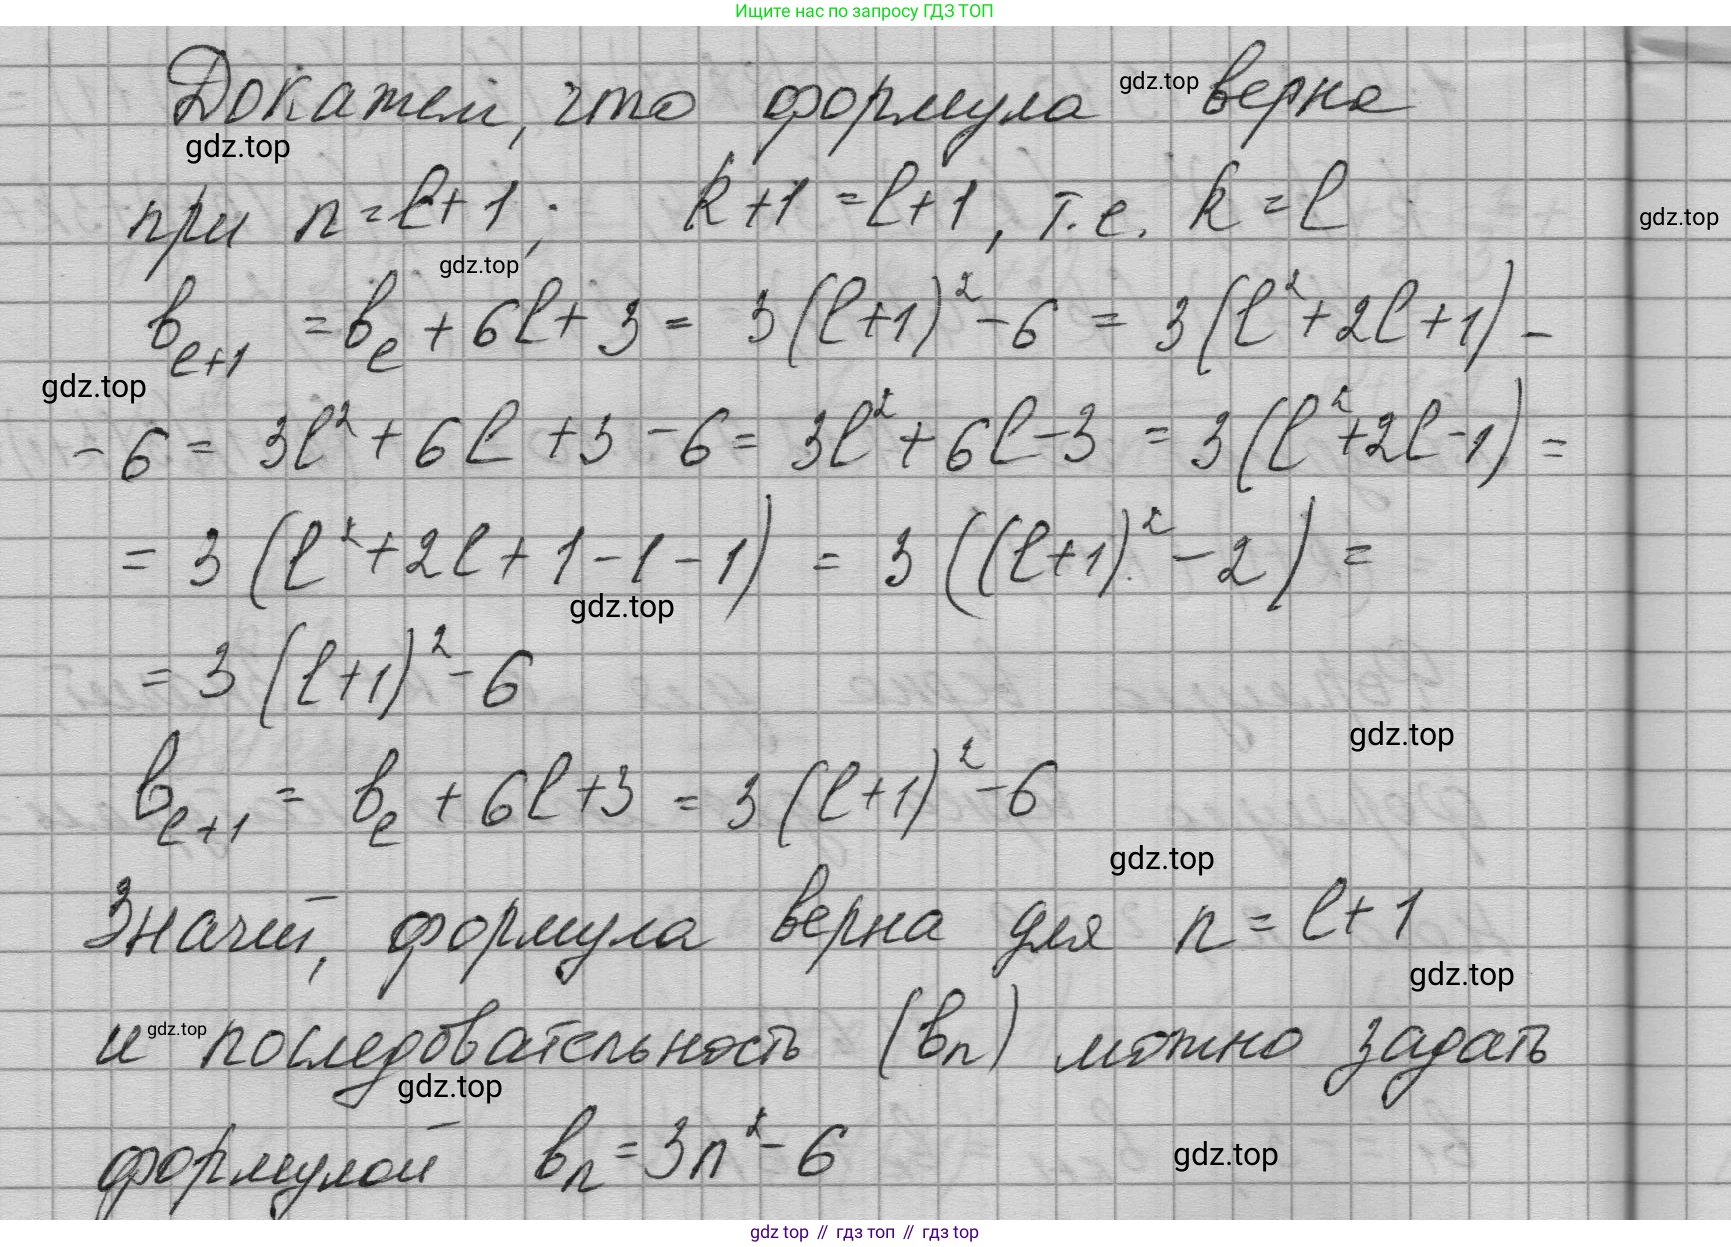 Ищите нас по запросу ГДЗ ТОП
Докажем, что формула gdz.top верна
gdz.top
при n = l + 1; k + 1 = l + 1, т.е. k = l
gdz.top
gdz.top
b_{l+1} = b_l + 6l + 3 = 3(l+1)² - 6 = 3(l² + 2l + 1) -
gdz.top
- 6 = 3l² + 6l + 3 - 6 = 3l² + 6l - 3 = 3(l² + 2l - 1) =
= 3(l² + 2l + 1 - 1 - 1) = 3((l+1)² - 2) =
gdz.top
= 3(l+1)² - 6
gdz.top
b_{l+1} = b_l + 6l + 3 = 3(l+1)² - 6
gdz.top
Значит, формула верна для n = l + 1
gdz.top
и gdz.top последовательность (b_n) можно задать
gdz.top
формулой b_n = 3n² - 6
gdz.top
gdz top // гдз топ // гдз top